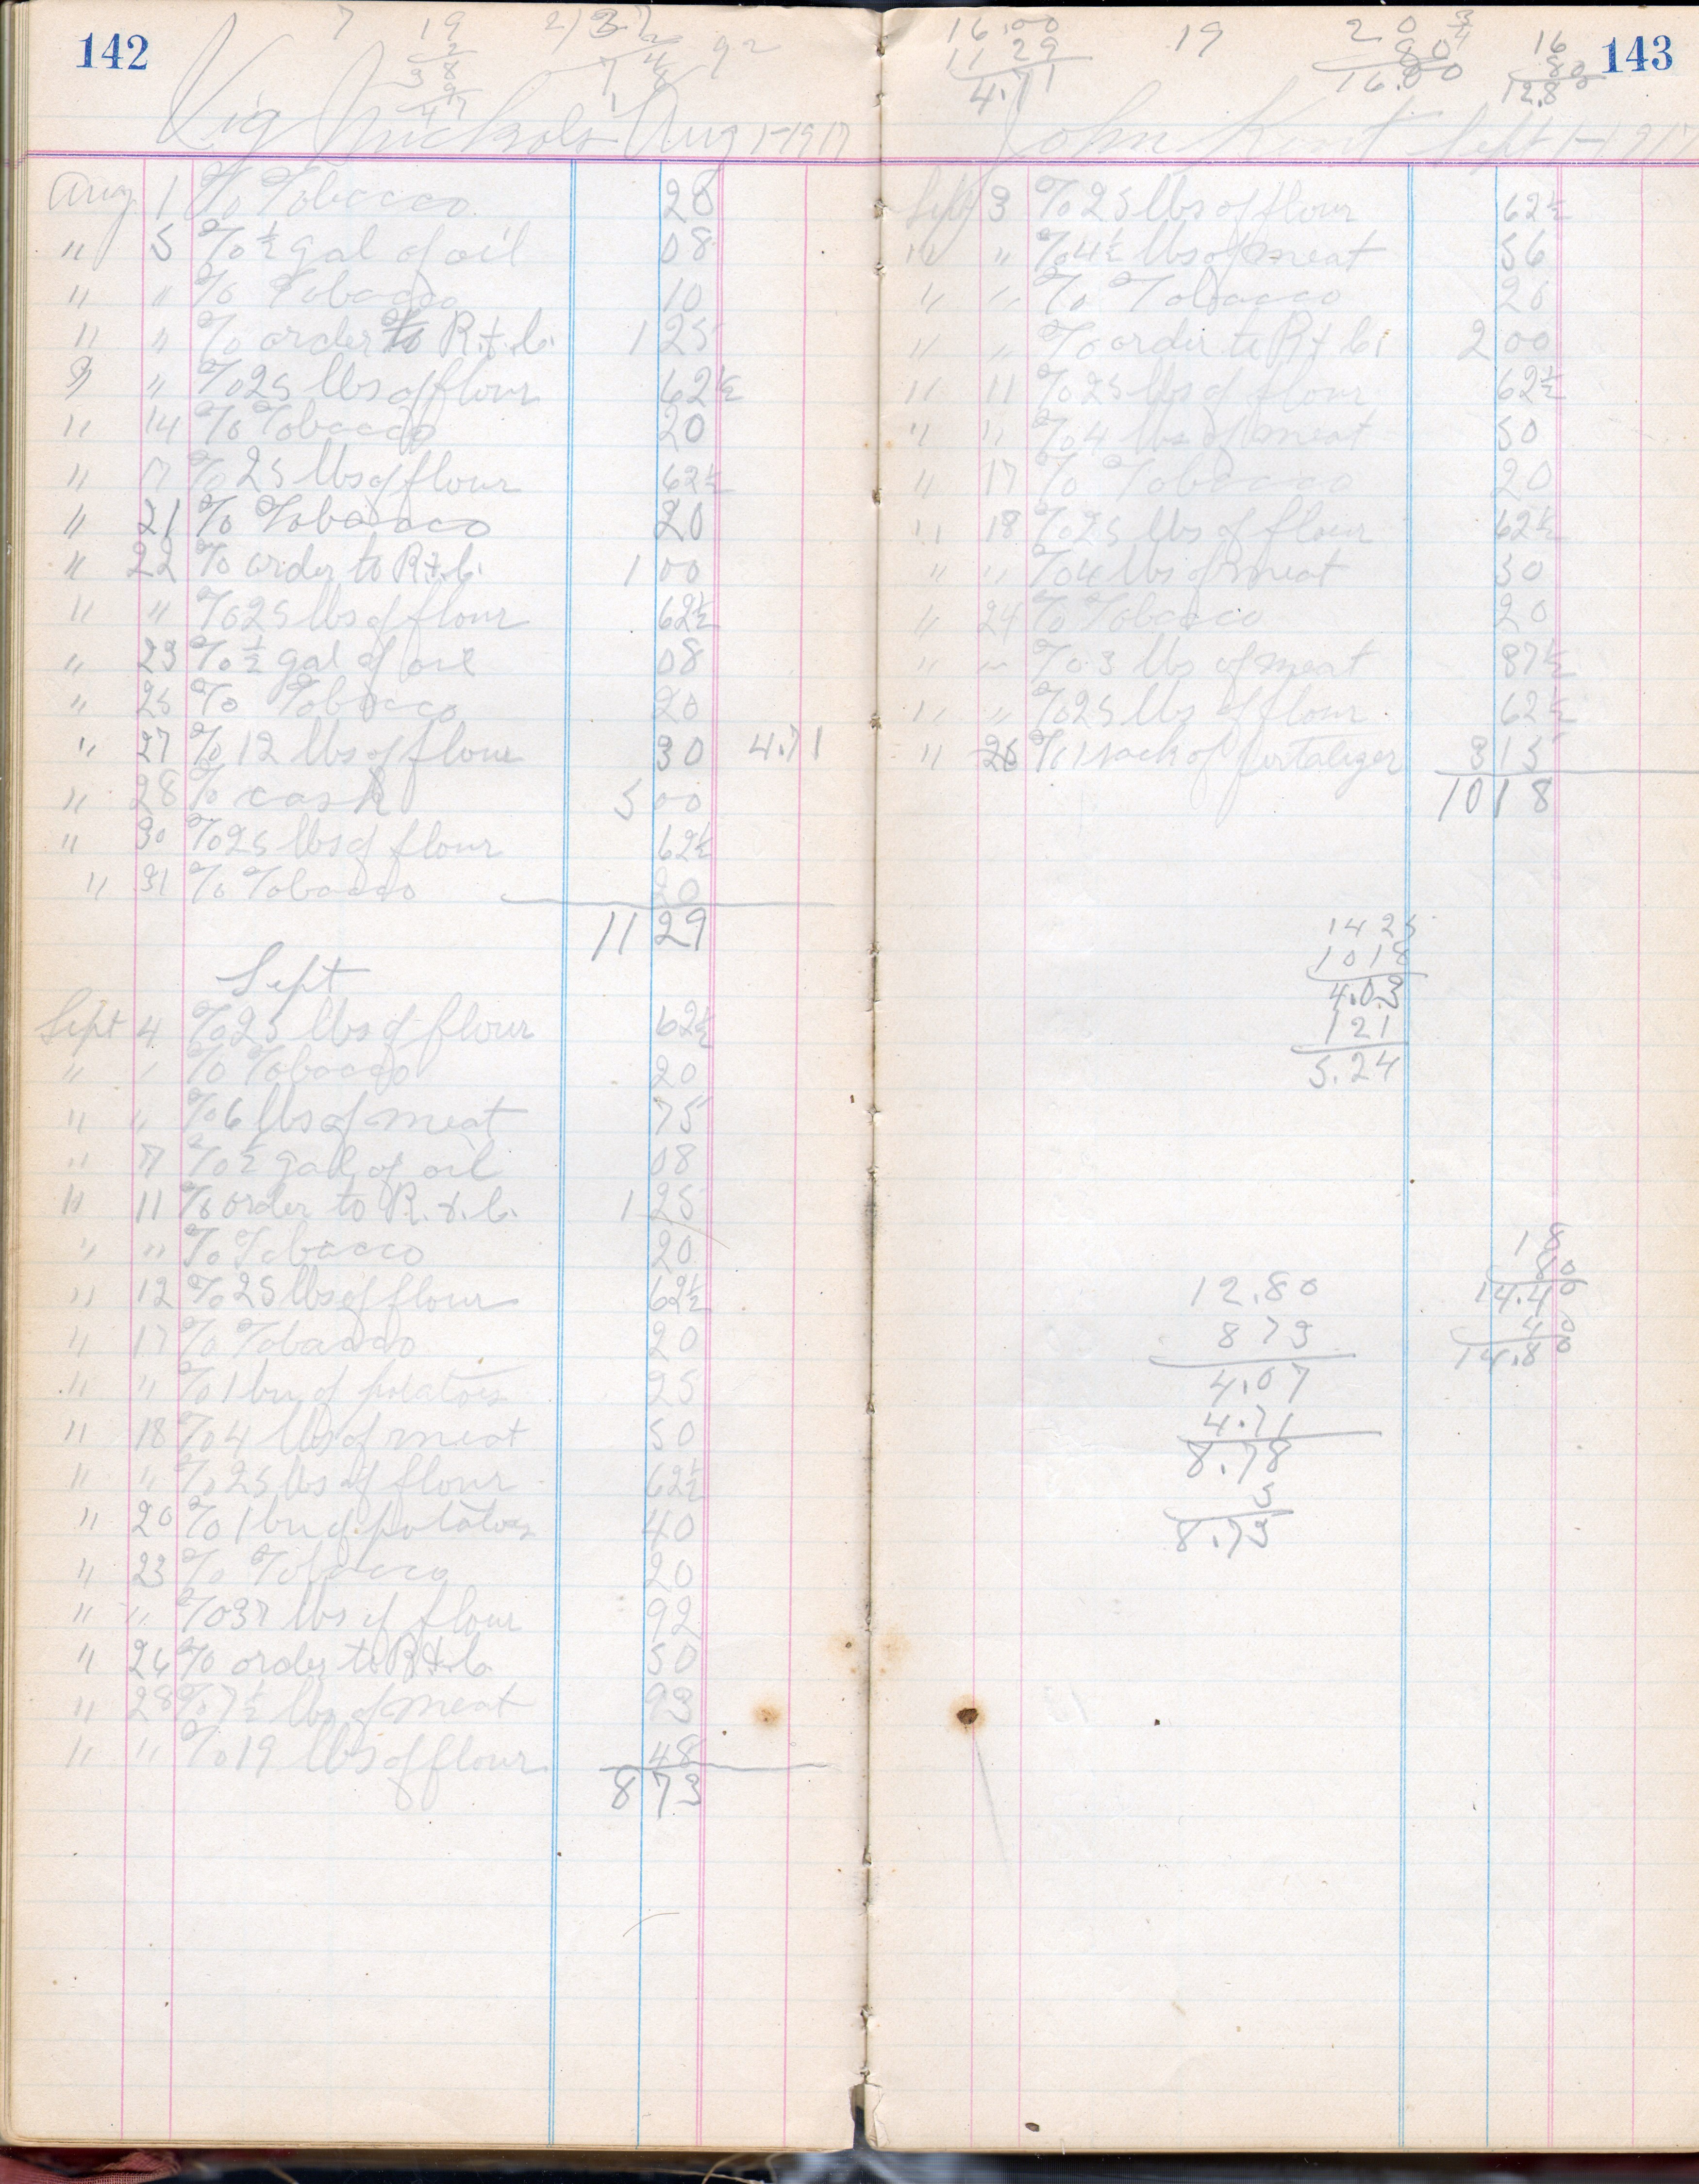 142
7 19 92
Nichols Aug 1-1917
Aug 1 % Tobacco 20
" 5 % ½ gal of oil 08
" " % Tobacco 10
" " % order to R.+.C. 1 25
9 " % 25 lbs of flour 62½
" 14 % Tobacco 20
" 17 % 25 lbs of flour 62½
" 21 % Tobacco 20
" 22 % order to R.+.C. 1 00
" " % 25 lbs of flour 62½
" 23 % ½ gal of oil 08
" 25 % Tobacco 20
" 27 % 12 lbs of flour 30 4.71
" 28 % cash 5 00
" 30 % 25 lbs of flour 62½
" 31 % Tobacco 20
11 29
Sept
Sept 4 % 25 lbs of flour 62½
" " % Tobacco 20
" " % 6 lbs of meat 75
" 7 % ½ gal of oil 08
" 11 % order to R.+.C. 1 25
" " % Tobacco 20
" 12 % 25 lbs of flour 62½
" 17 % Tobacco 20
" " % 1 bu of potatoes 25
" 18 % 4 lbs of meat 50
" " % 25 lbs of flour 62½
" 20 % 1 bu of potatoes 40
" 23 % Tobacco 20
" " % 37 lbs of flour 92
" 26 % order to R+.C. 50
" 28 % 7½ lbs of meat 93
" " % 19 lbs of flour 48
8 73
143
16.00
11 29
4.71
19
20
80
16.00
16
80
12.80
John Sept 1-1917
Sept 3 % 25 lbs of flour 62½
" " % 4½ lbs of meat 56
" " % Tobacco 20
" " % order to R+C. 2 00
" 11 % 25 lbs of flour 62½
" " % 4 lbs of meat 50
" 17 % Tobacco 20
" 18 % 25 lbs of flour 62½
" " % 4 lbs of meat 50
" 24 % Tobacco 20
" " % 3 lbs of meat 37½
" " % 25 lbs of flour 62½
" 25 % 1 sack of fertalizer 3 15
10 18
14 25
10 18
4.03
1 21
5.24
18
80
14.40
40
14.80
12.80
8 73
4.07
4.71
8.78
5
8.73